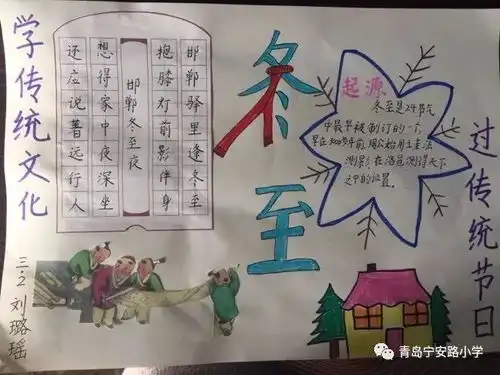 学传统文化
邯郸驿里逢冬至
抱膝灯前影伴身
邯郸冬至夜
想得家中夜深坐
还应说着远行人
冬至
起源
冬至是24节气
中最早被制订的一个
早在3000多年前,周公始用土圭法
测影,在洛邑测得天下
之中的位置。
过传统节日
三.2 刘璐瑶
青岛宁安路小学